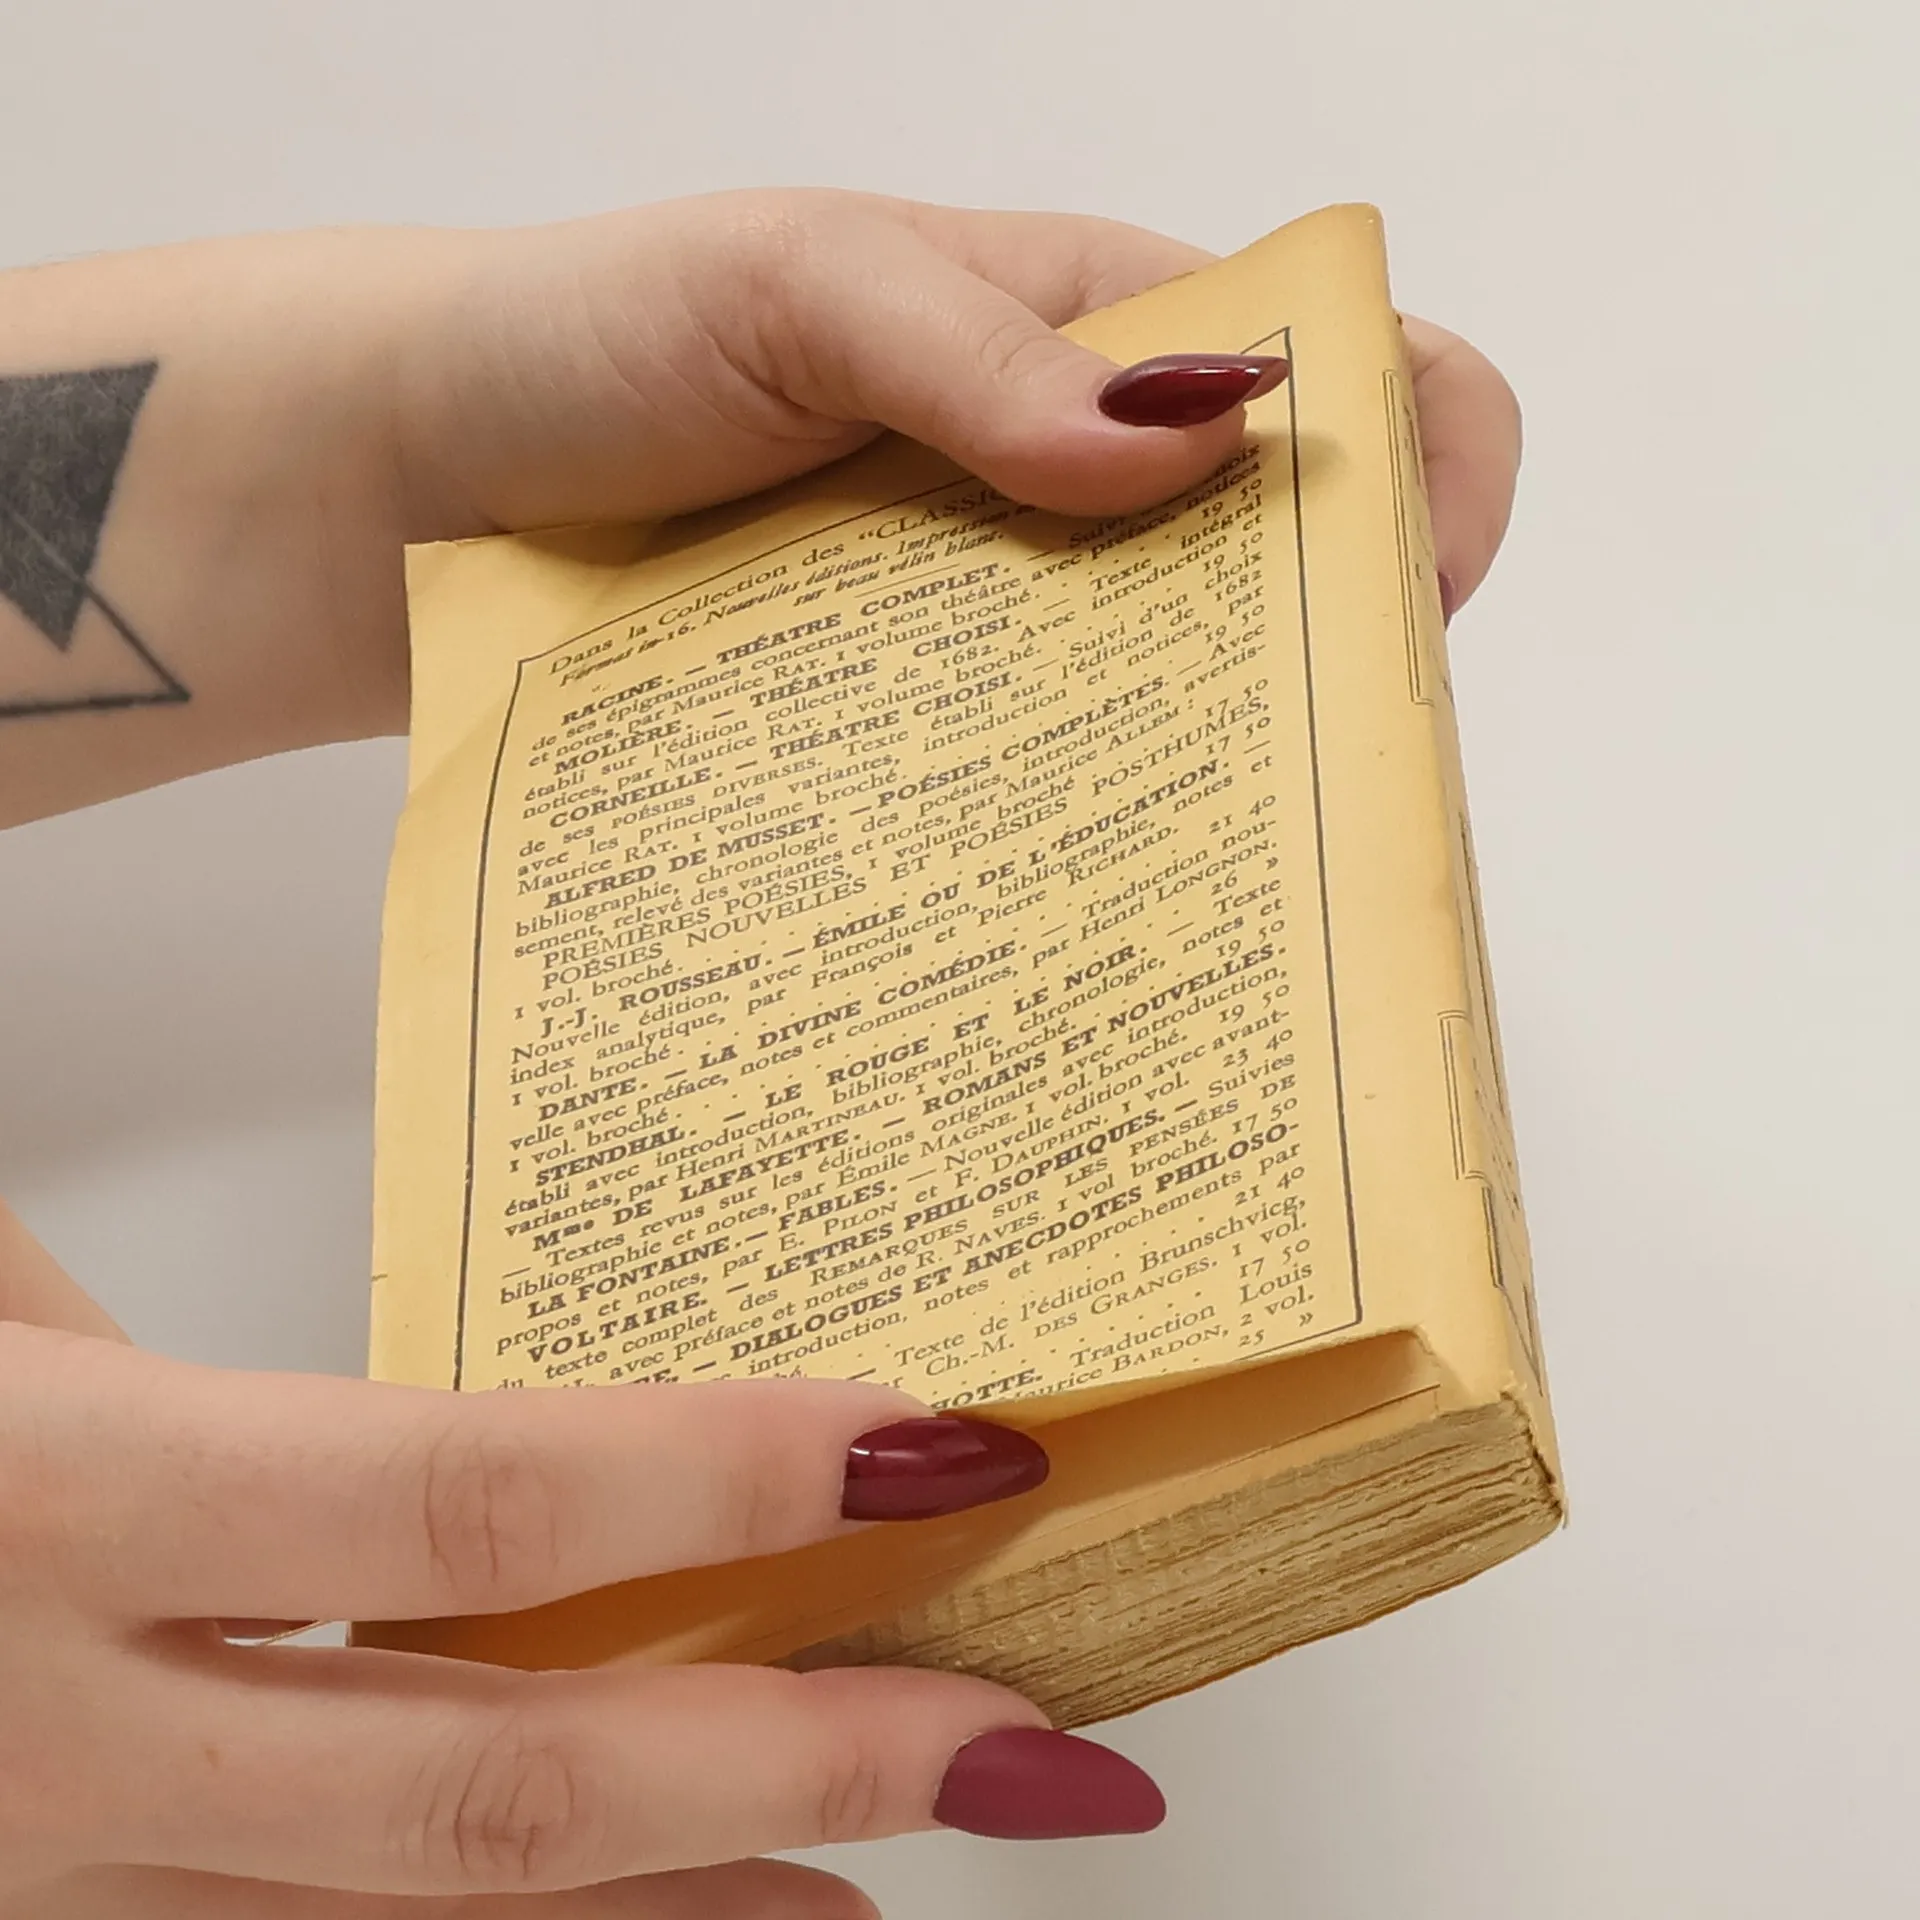 Dans la Collection des "CLASSI
Format in-16. Nouvelles éditions. Impression
sur beau vélin blanc.
RACINE. — THÉATRE COMPLET. — Suivi
de ses épigrammes concernant son théâtre avec préface, notices
et notes, par Maurice RAT. 1 volume broché. . . . 19 50
MOLIÈRE. — THÉATRE CHOISI. — Texte intégral
établi sur l'édition collective de 1682. Avec introduction et
notices, par Maurice RAT. 1 volume broché. . . . 19 50
CORNEILLE. — THÉATRE CHOISI. — Suivi d'un choix
de ses POÉSIES DIVERSES. Texte établi sur l'édition de 1682
avec les principales variantes, introduction et notices, par
Maurice RAT. 1 volume broché. . . . 19 50
ALFRED DE MUSSET. — POÉSIES COMPLÈTES. — Avec
bibliographie, chronologie des poésies, introduction, avertis-
sement, relevé des variantes et notes, par Maurice ALLEM :
PREMIÈRES POÉSIES, 1 volume broché . . 17 50
POÉSIES NOUVELLES ET POÉSIES POSTHUMES,
1 vol. broché. . . . 17 50
J.-J. ROUSSEAU. — ÉMILE OU DE L'ÉDUCATION. —
Nouvelle édition, avec introduction, bibliographie, notes et
index analytique, par François et Pierre RICHARD.
1 vol. broché. . . . 21 40
DANTE. — LA DIVINE COMÉDIE. — Traduction nou-
velle avec préface, notes et commentaires, par Henri LONGNON.
1 vol. broché. . . . 26 »
STENDHAL. — LE ROUGE ET LE NOIR. — Texte
établi avec introduction, bibliographie, chronologie, notes et
variantes, par Henri MARTINEAU. 1 vol. broché. . . 19 50
Mme DE LAFAYETTE. — ROMANS ET NOUVELLES.
— Textes revus sur les éditions originales avec introduction,
bibliographie et notes, par Émile MAGNE. 1 vol. broché. 19 50
LA FONTAINE. — FABLES. — Nouvelle édition avec avant-
propos et notes, par E. PILON et F. DAUPHIN. 1 vol. 23 40
VOLTAIRE. — LETTRES PHILOSOPHIQUES. — Suivies
du texte complet des REMARQUES SUR LES PENSÉES DE
avec préface et notes de R. NAVES. 1 vol broché. 17 50
— DIALOGUES ET ANECDOTES PHILOSO-
introduction, notes et rapprochements par
21 40
— Texte de l'édition Brunschvicg,
Ch.-M. DES GRANGES. 1 vol.
17 50
Traduction Louis
BARDON, 2 vol.
25 »